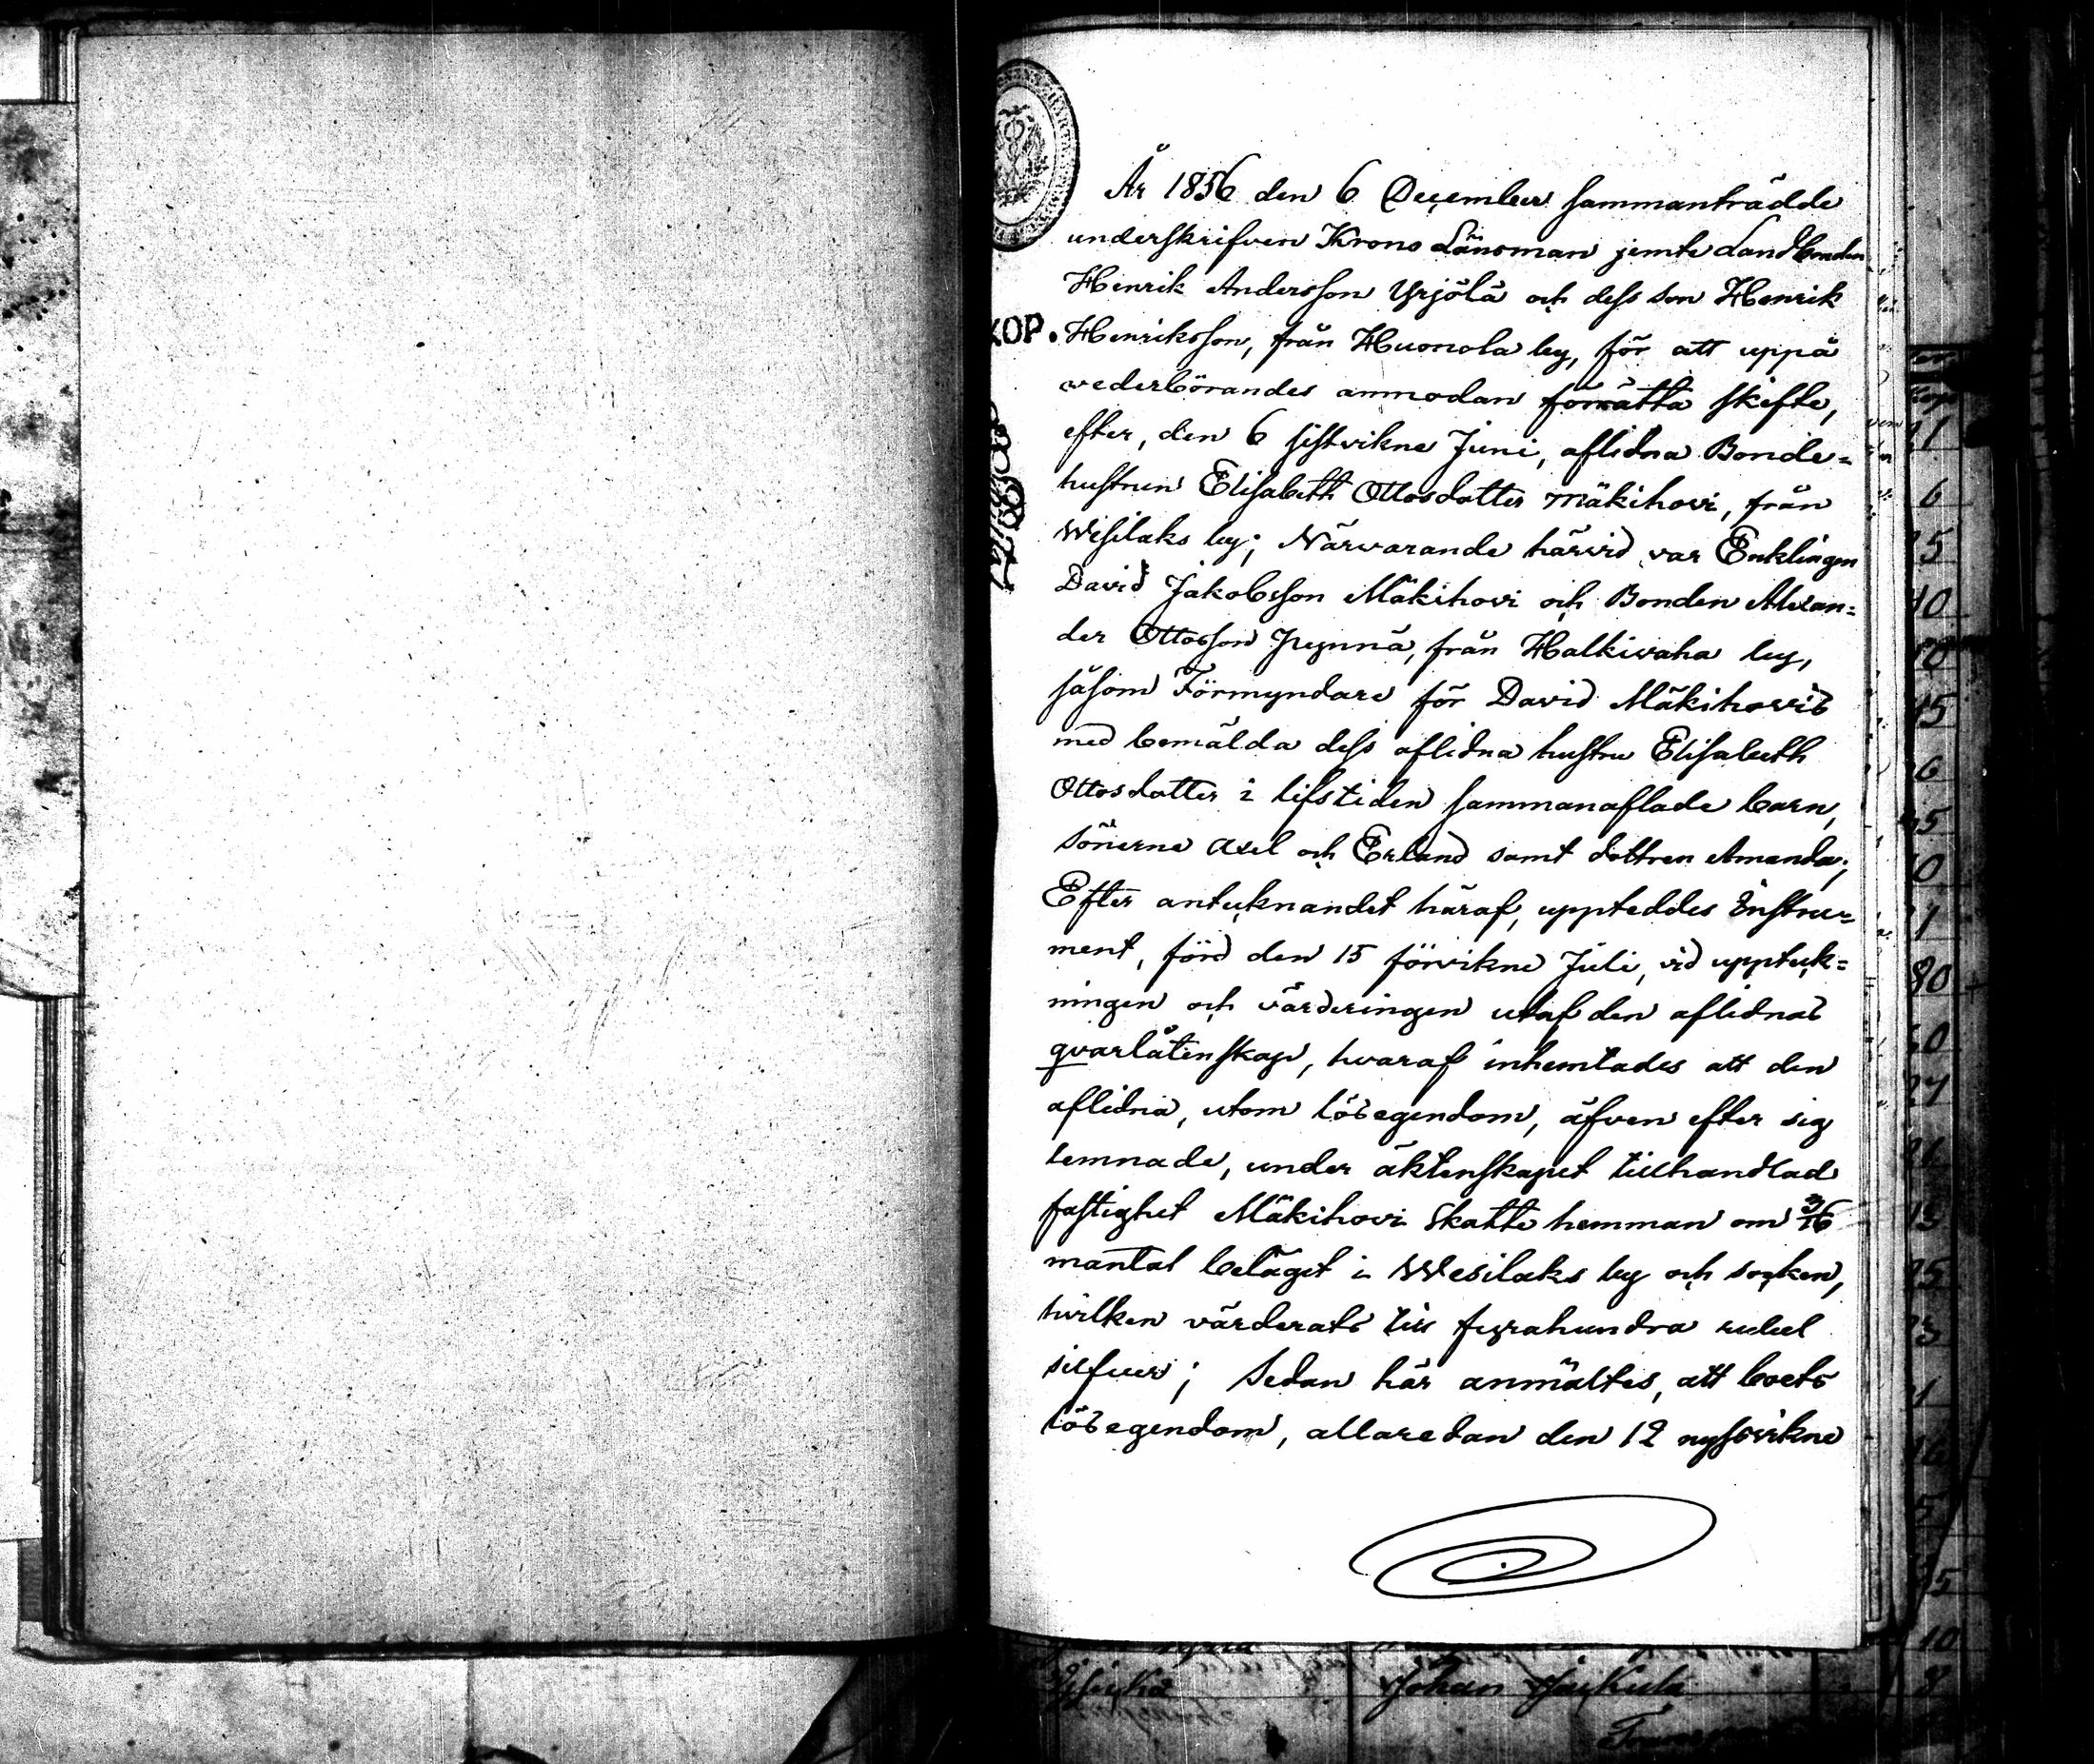 KOP.
År 1856 den 6 December sammanträdde
underskrifven Krono Länsman jemte Landbonden
Henrik Andersson Yrjölä och dess son Henrik
Henriksson, från Huonola by, för att uppå
wederbörandes anmodan förrätta skifte,
efter, den 6 sistvikne Juni, aflidna Bonde=
hustrun Elisabeth Ottosdotter Mäkihovi, från
Wesilaks by; Närvarande härvid var Enklingen
David Jakobsson Mäkihovi och Bonden Alexan=
der Ottosson Pynnä, från Halkivaha by,
såsom Förmyndare för David Mäkihovis
med bemälda dess aflidna hustru Elisabeth
Ottosdotter i lifstiden sammanaflade barn,
sönerne Axel och Erland samt dottren Amanda;
Efter antecknandet häraf, uppteddes Instru=
ment, förd den 15 förvikne Juli, vid uppteck=
ningen och värderingen utaf den aflidnas
qvarlåtenskap, hvaraf inhemtades att den
aflidna, utom lösegendom, äfven efter sig
lemnade, under äktenskapet tillhandlad
fastighet Mäkihovi Skatte hemman om 3/16
mantal beläget i Wesilaks by och socken,
hvilken värderats till fyrahundra rubel
silfver; Sedan här anmältes, att boets
lösegendom, allaredan den 12 nyssvikne
Johan